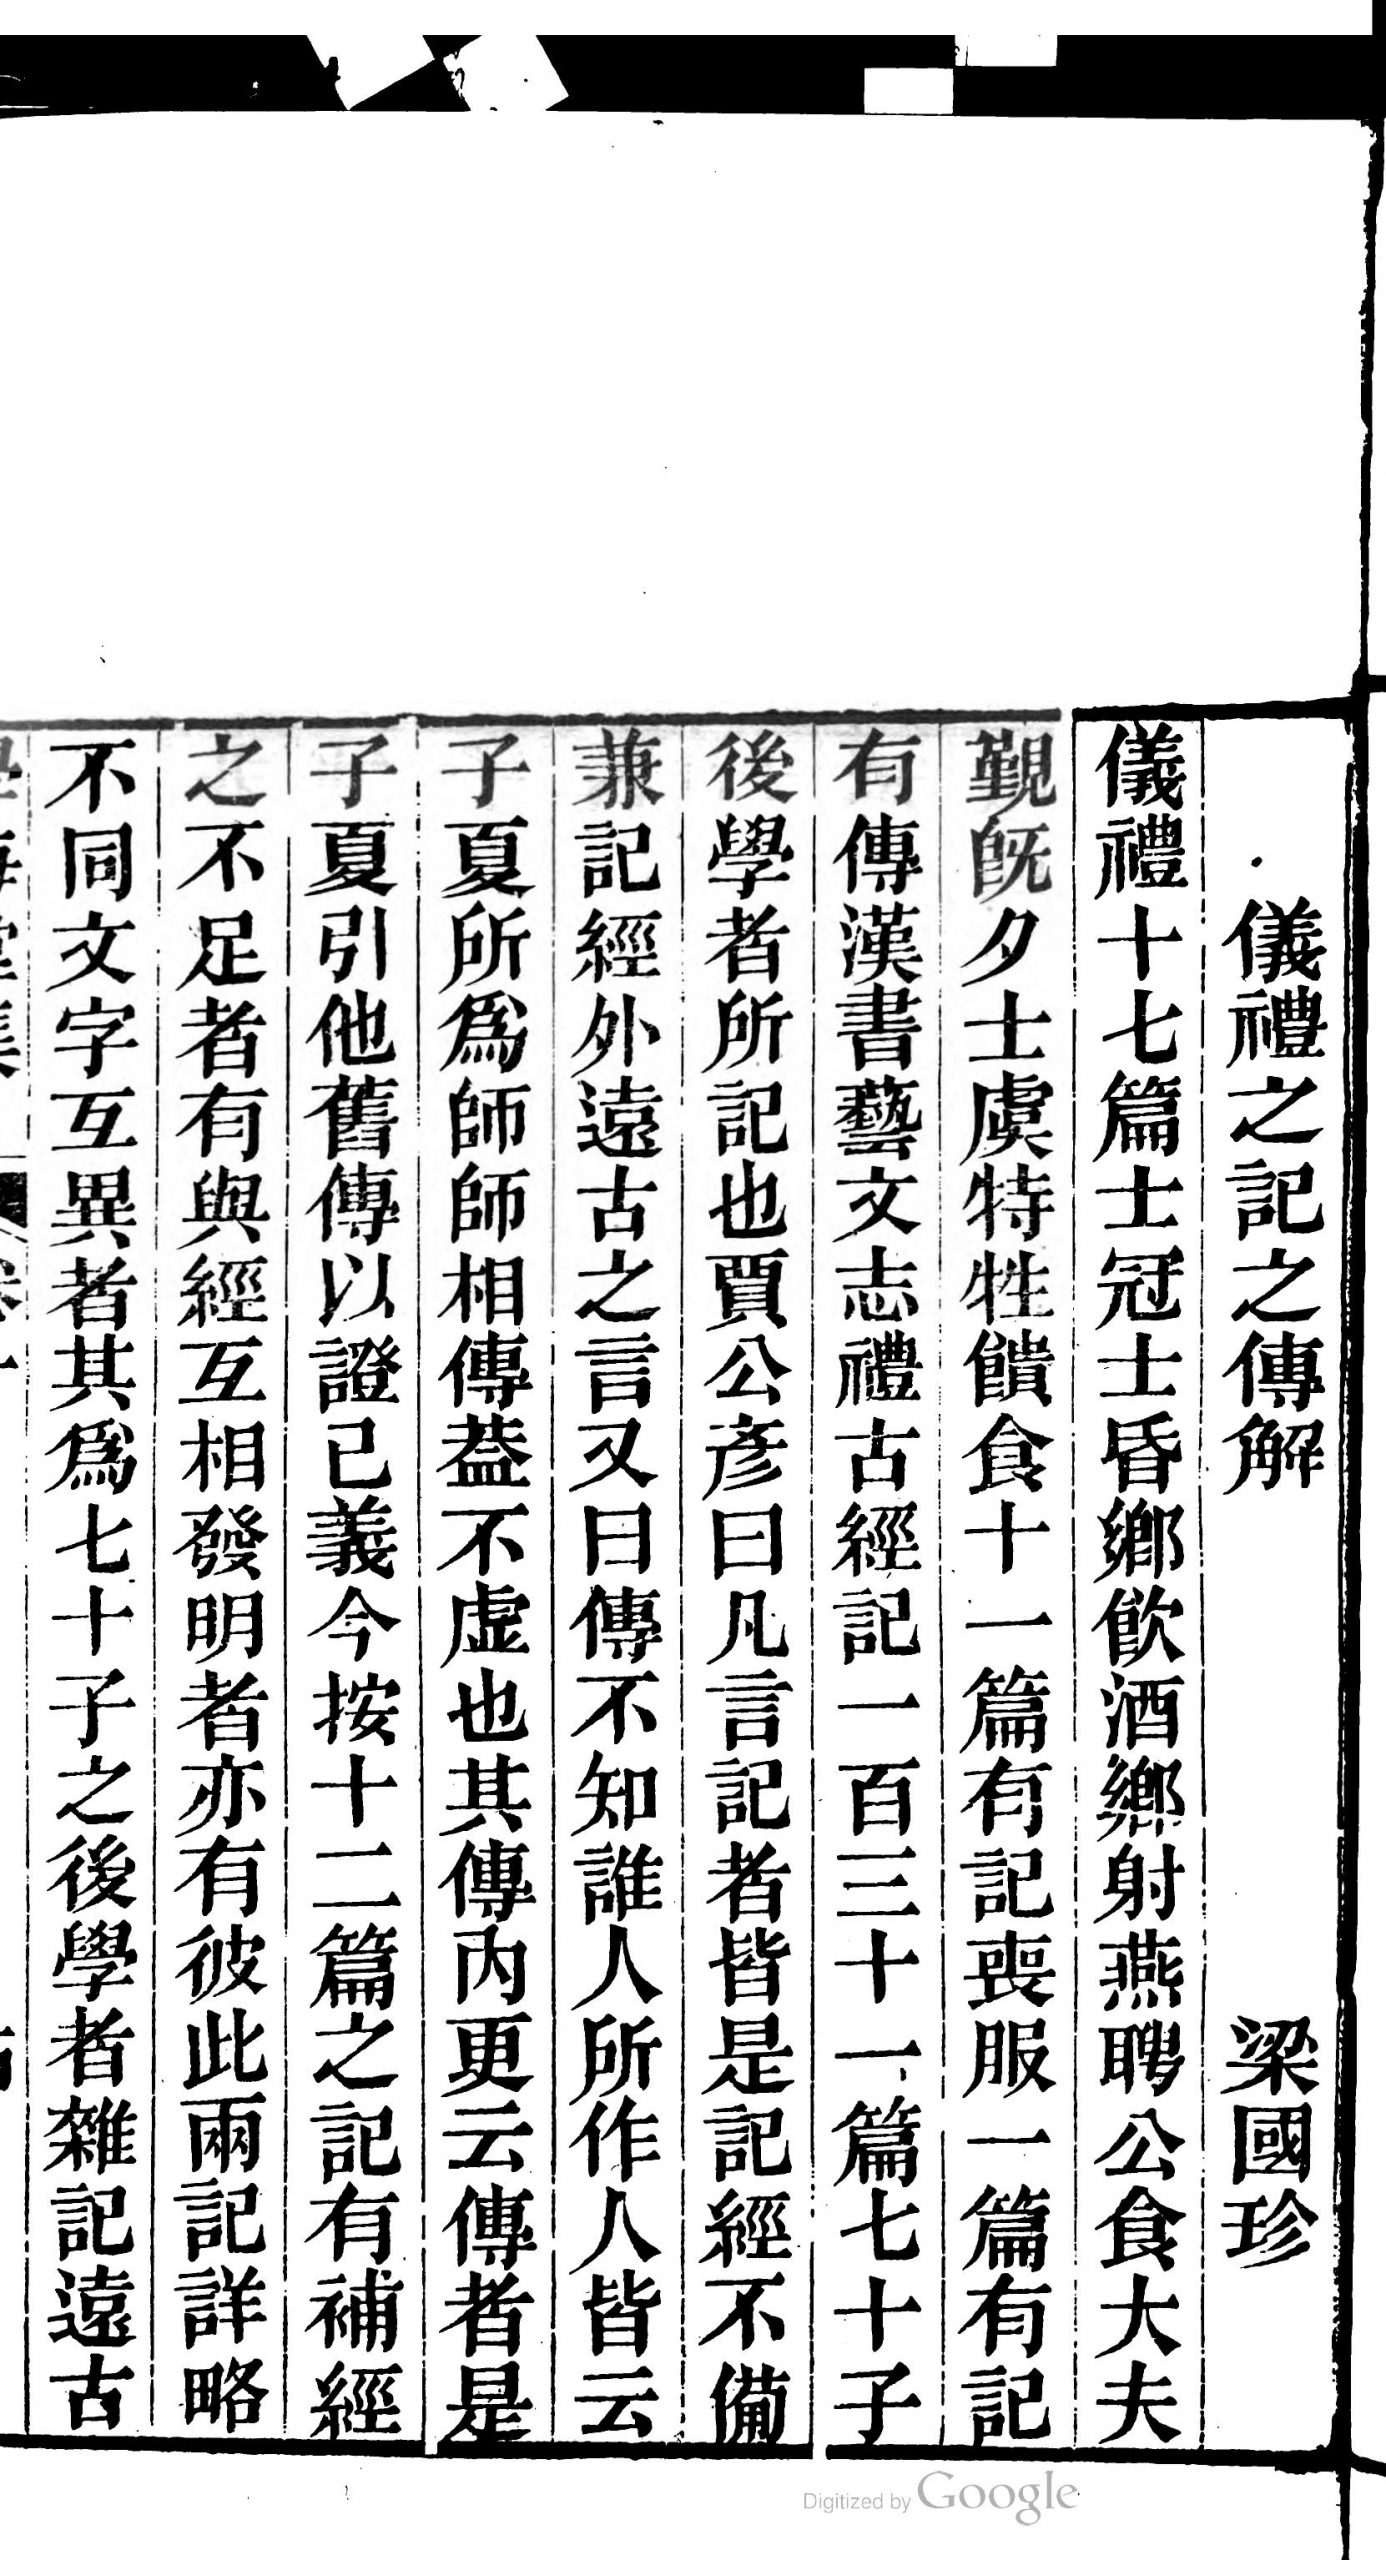 儀禮之記之傳解 梁國珍
儀禮十七篇士冠士昏鄉飲酒鄉射燕聘公食大夫
覲旣夕士虞特牲饋食十一篇有記喪服一篇有記
有傳漢書藝文志禮古經記一百三十一篇七十子
後學者所記也賈公彥曰凡言記者皆是記經不備
兼記經外遠古之言又曰傳不知誰人所作人皆云
子夏所爲師師相傳葢不虛也其傳內更云傳者是
子夏引他舊傳以證己義今按十二篇之記有補經
之不足者有與經互相發明者亦有彼此兩記詳略
不同文字互異者其爲七十子之後學者雜記遠古
Digitized by Google